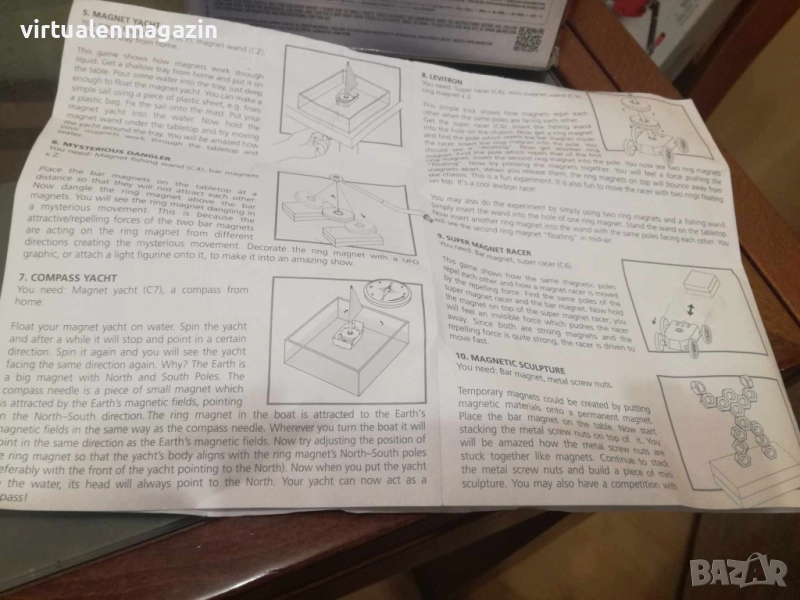 virtualenmagazin
5. MAGNET YACHT
magnet wand (C2),
tray from home.
This game shows how magnets work through
liquid. Get a shallow tray from home and put it on
the table. Pour some water into the tray, just deep
enough to float the magnet yacht. You can make a
simple sail using a piece of plastic sheet, e.g. from
a plastic bag. Fix the sail onto the mast. Put your
magnet yacht into the water. Now hold the
magnet wand under the tabletop and try moving
the yacht around the tray. You will be amazed how
your magnets work through the tabletop and
water.
6. MYSTERIOUS DANGLER
You need: Magnet fishing wand (C4), bar magnets
x 2.
Place the bar magnets on the tabletop at a
distance so that they will not attract each other.
Now dangle the ring magnet above the bar
magnets. You will see the ring magnet dangling in
a mysterious movement. This is because the
attractive/repelling forces of the two bar magnets
are acting on the ring magnet from different
directions creating the mysterious movement. Decorate the ring magnet with a UFO
graphic, or attach a light figurine onto it, to make it into an amazing show.
7. COMPASS YACHT
You need: Magnet yacht (C7), a compass from
home.
Float your magnet yacht on water. Spin the yacht
and after a while it will stop and point in a certain
direction. Spin it again and you will see the yacht
facing the same direction again. Why? The Earth is
a big magnet with North and South Poles. The
compass needle is a piece of small magnet which
is attracted by the Earth's magnetic fields, pointing
in the North-South direction. The ring magnet in the boat is attracted to the Earth's
magnetic fields in the same way as the compass needle. Wherever you turn the boat it will
point in the same direction as the Earth's magnetic fields. Now try adjusting the position of
the ring magnet so that the yacht's body aligns with the ring magnet's North-South poles
(preferably with the front of the yacht pointing to the North). Now when you put the yacht
the water, its head will always point to the North. Your yacht can now act as a
pass!
8. LEVITRON
You need: Super racer (C6), mini magnet wand (C8),
ring magnet x 2.
This simple trick shows how magnets repel each
other when the same poles are facing each other.
Get the super racer (C6). Insert the fishing wand
into the hole on the chassis. Now get a ring magnet
magnets apart. When you release them, the ring magnets on top will bounce away from
the chassis. This is a fun experiment. It is also fun to move the racer with two rings floating
on top. It's a cool levitron racer.
You may also do the experiment by simply using two ring magnets and a fishing wand.
Simply insert the wand into the hole of one ring magnet. Stand the wand on the tabletop.
Now insert another ring magnet into the wand with the same poles facing each other. You
will see the second ring magnet "floating" in mid-air.
9. SUPER MAGNET RACER
You need: Bar magnet, super racer (C6).
This game shows how the same magnetic poles
repel each other and how a magnet racer is moved
by the repelling force. Find the same poles of the
super magnet racer and the bar magnet. Now hold
the magnet on top of the super magnet racer, you
will feel an invisible force which pushes the racer
away. Since both are strong magnets and the
repelling force is quite strong, the racer is driven to
move fast.
10. MAGNETIC SCULPTURE
You need: Bar magnet, metal screw nuts.
Temporary magnets could be created by putting
magnetic materials onto a permanent magnet.
Place the bar magnet on the table. Now start
stacking the metal screw nuts on top of it. You
will be amazed how the metal screw nuts are
stuck together like magnets. Continue to stack
the metal screw nuts and build a piece of mini
sculpture. You may also have a competition with
BAZAR